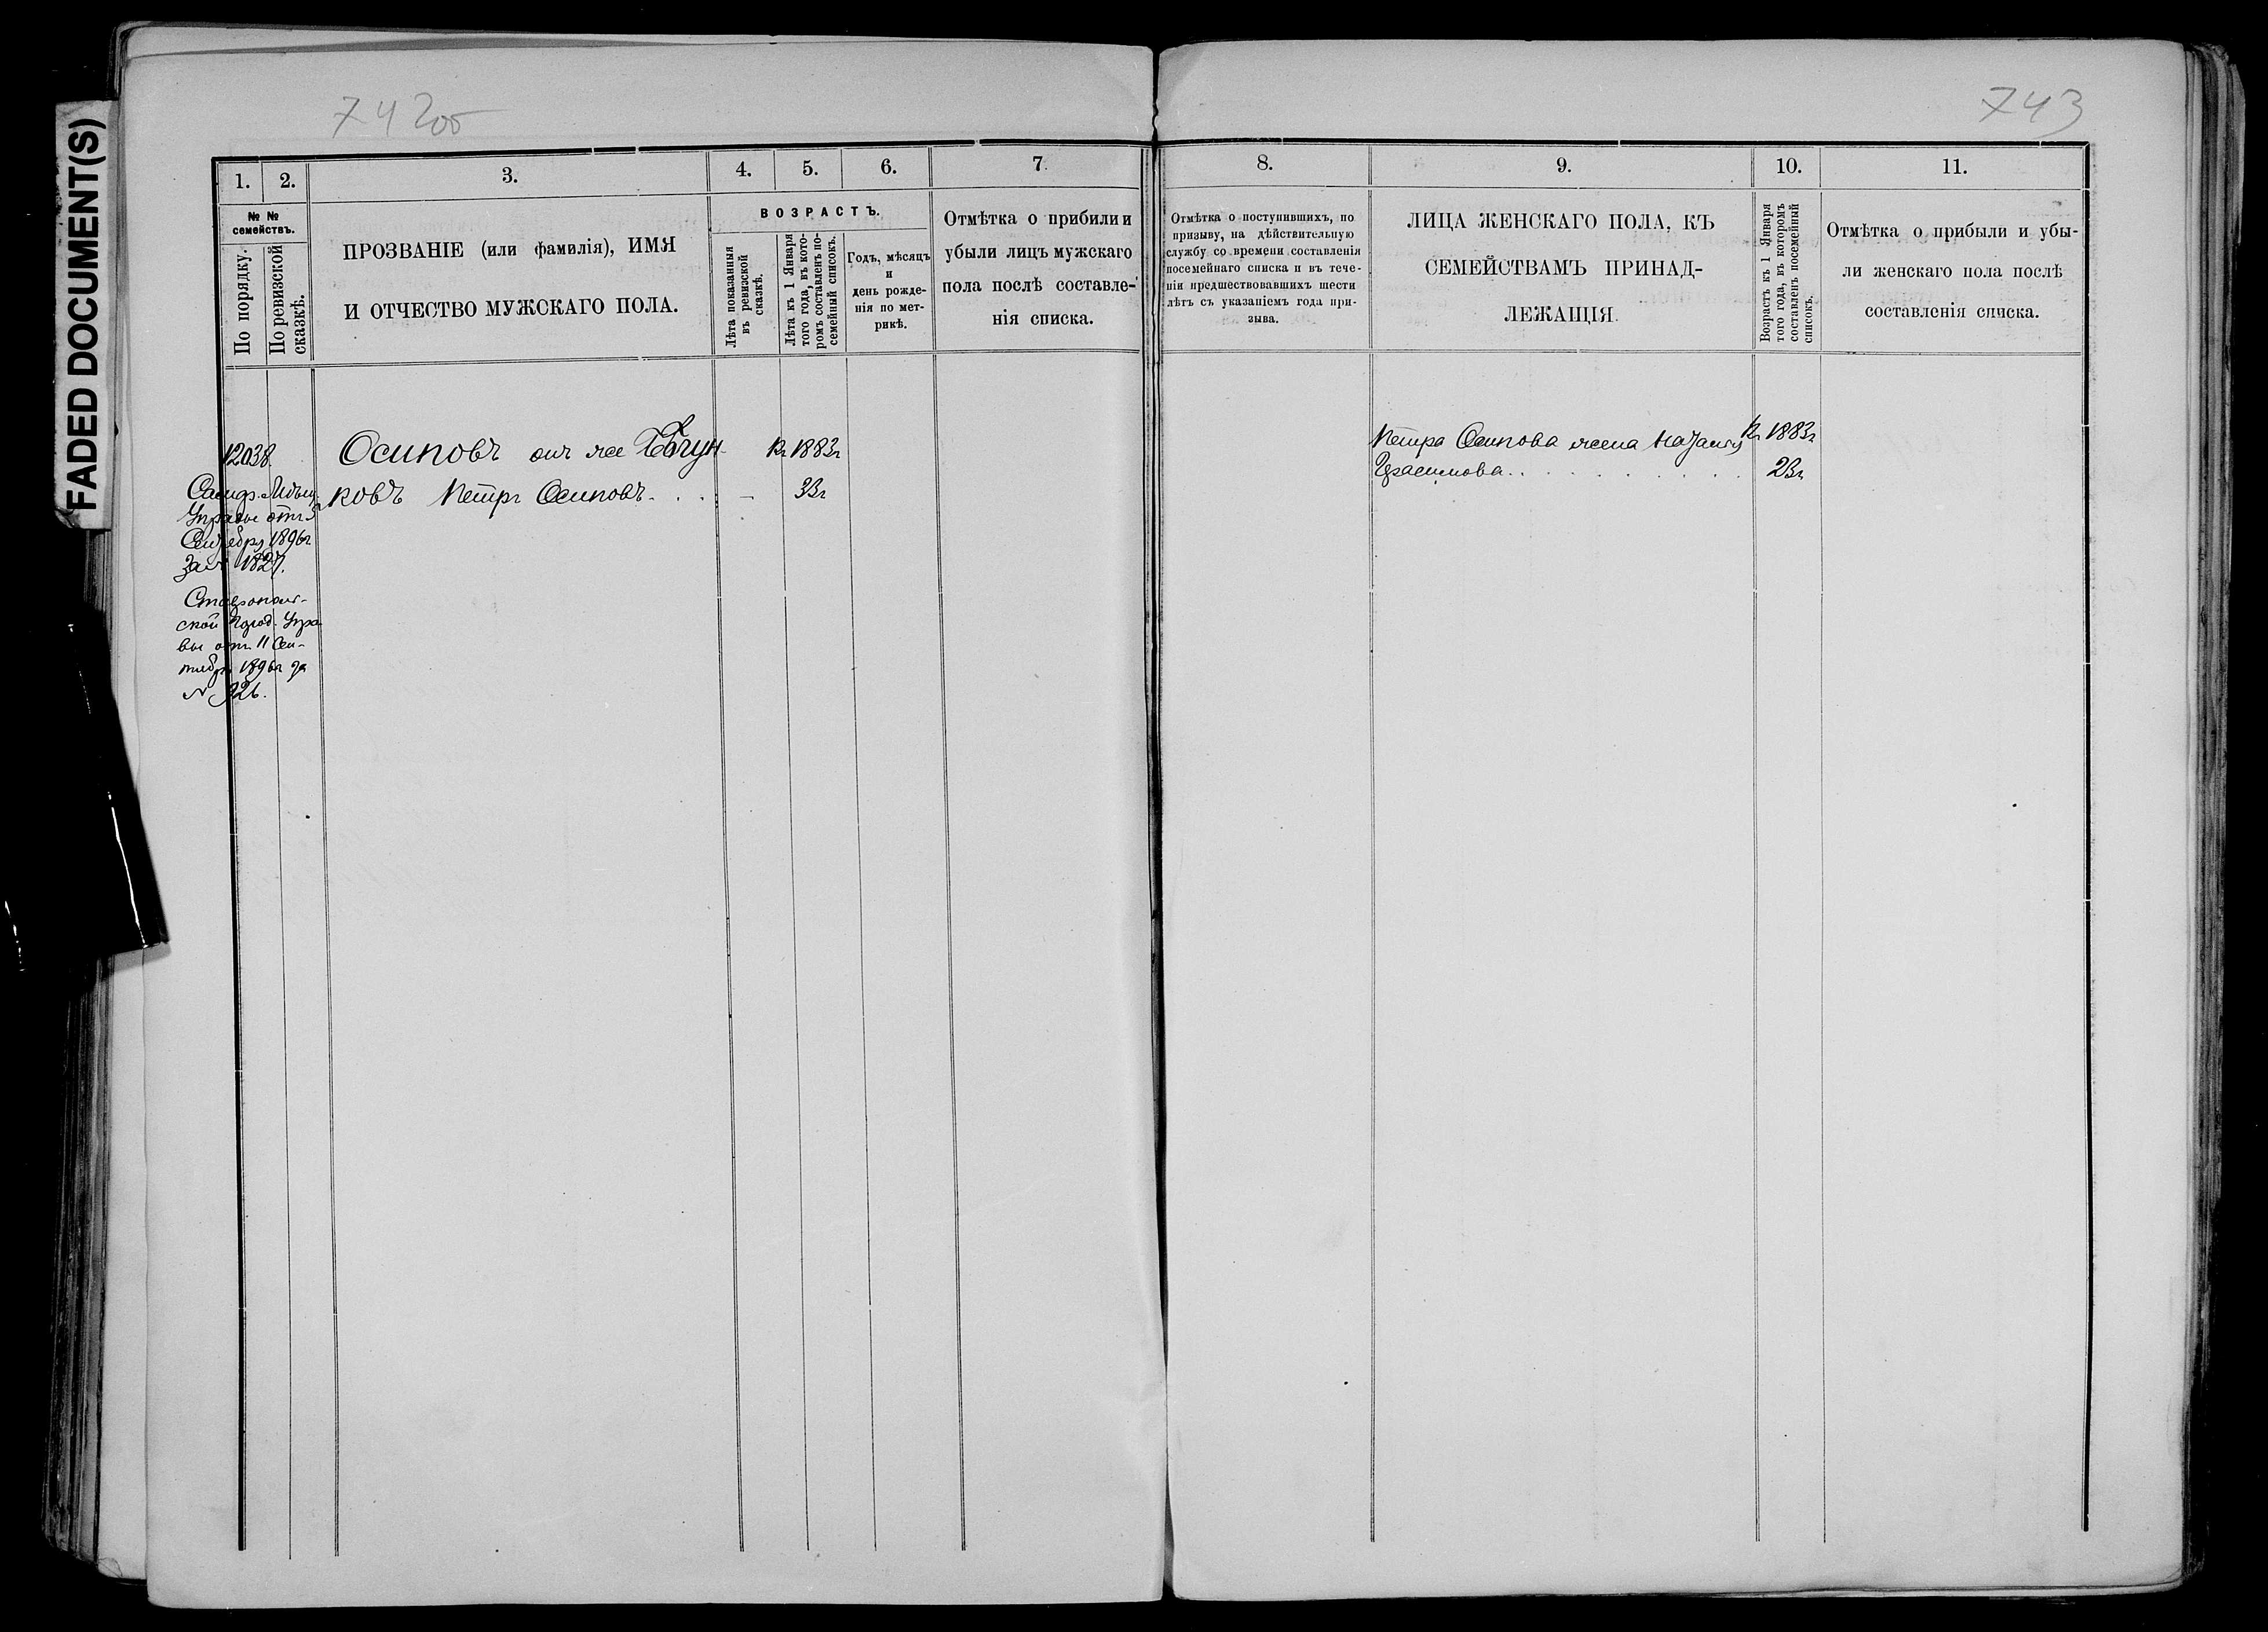 FADED DOCUMENT(S)
742об
743
1. 2. 3. 4. 5. 6. 7. 8. 9. 10. 11.
№ №
семействъ.
По порядку.
По ревизской
сказкѣ.
ПРОЗВАНІЕ (или фамилія), ИМЯ
И ОТЧЕСТВО МУЖСКАГО ПОЛА.
ВОЗРАСТЪ.
Лѣта показанныя
въ ревизской
сказкѣ.
Лѣта къ 1 Января
того года, въ кото-
ромъ составленъ по-
семейный списокъ.
Годъ, мѣсяцъ
и
день рожде-
нія по мет-
рикѣ.
Отмѣтка о прибыли и
убыли лицъ мужскаго
пола послѣ составле-
нія списка.
Отмѣтка о поступившихъ, по
призыву, на дѣйствительную
службу со времени составленія
посемейнаго списка и въ тече-
ніи предшествовавшихъ шести
лѣтъ съ указаніемъ года при-
зыва.
ЛИЦА ЖЕНСКАГО ПОЛА, КЪ
СЕМЕЙСТВАМЪ ПРИНАД-
ЛЕЖАЩІЯ.
Возрастъ къ 1 Января
того года, въ которомъ
составленъ посемейный
списокъ.
Отмѣтка о прибыли и убы-
ли женскаго пола послѣ
составленія списка.
12038.
Осиповъ онъ же
къ 1883г
ковъ Петръ Осиповъ. . . — 33г
Управы отъ 5
Сентября 1896г
за № 1827.
Ставрополь-
ской Город. Упра
вы отъ 11 Сен-
тября 1896г за
№ 926.
Петра Осипова жена Наталія къ 1883г
Герасимова . . . . . . . . . 23г